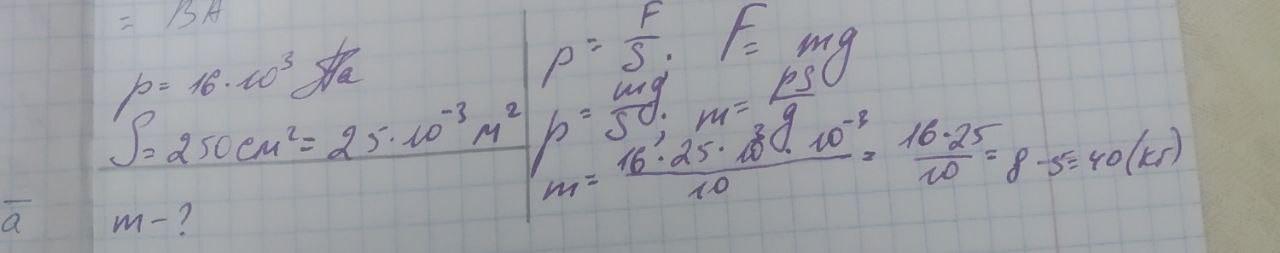 = BA
p = 16·10³ Па
S = 250 см² = 25·10⁻³ м²
m - ?
a̅
p = F/S. F = mg
p = mg/S; m = pS/g
m = 16·25·10³·10⁻³/10 = 16·25/10 = 8·5 = 40 (кг)